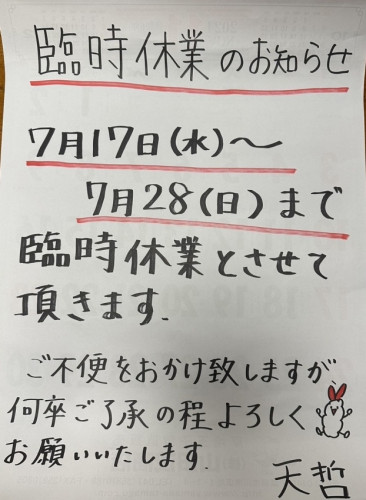 臨時休業のお知らせ
7月17日(水)～
7月28(日)まで
臨時休業とさせて
頂きます.
ご不便をおかけ致しますが
何卒ご了承の程よろしく
お願いいたします.
天哲